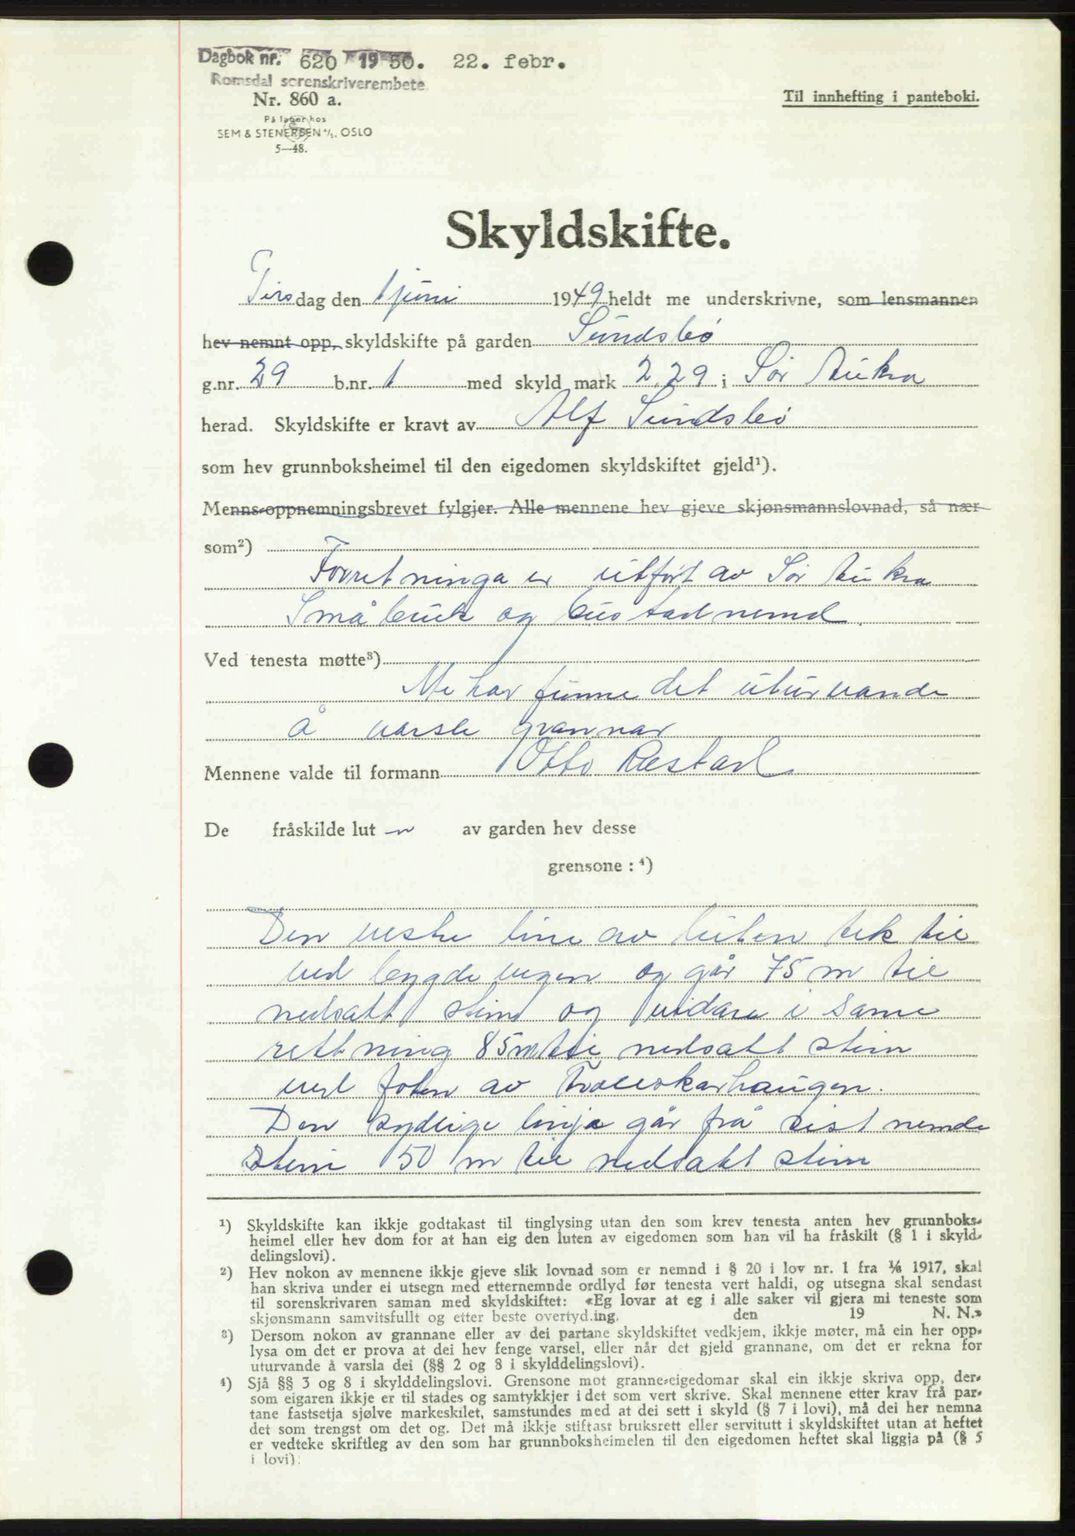 Dagbok nr. 620 1950. 22. febr.
Romsdal sorenskriverembete
Nr. 860 a.
Til innhefting i panteboki.
På lager hos
SEM & STENERSEN A/S, OSLO
5—48.
Skyldskifte.
Tirsdag den 1 juni 1949 heldt me underskrivne, som lensmannen
hev nemnt opp, skyldskifte på garden Sundsbö
g.nr. 29 b.nr. 1 med skyld mark 2.29 i Sör Aukra
herad. Skyldskifte er kravt av Alf Sundsbö
som hev grunnboksheimel til den eigedomen skyldskiftet gjeld¹).
Menns-oppnemningsbrevet fylgjer. Alle mennene hev gjeve skjønsmannslovnad, så nær
som²)
Forretninga er utfört av Sör Aukra
Småbruk og bustadnemd.
Ved tenesta møtte³)
Me har funne det uturvande
å varsle grannar
Mennene valde til formann Otto Røstad
De fråskilde lut n av garden hev desse
grensone : ⁴)
Den vestre line av luten tek til
ved bygdevegen og går 75 m til
nedsatt stein og vidare i same
rettning 85 m til nedsatt stein
ved foten av Trollskarhaugen.
Den sydlige linja går frå sist nemde
stein 50 m til nedsatt stein
¹) Skyldskifte kan ikkje godtakast til tinglysing utan den som krev tenesta anten hev grunnboks-
heimel eller hev dom for at han eig den luten av eigedomen som han vil ha fråskilt (§ 1 i skyld-
delingslovi).
²) Hev nokon av mennene ikkje gjeve slik lovnad som er nemnd i § 20 i lov nr. 1 fra 1/6 1917, skal
han skriva under ei utsegn med etternemnde ordlyd før tenesta vert haldi, og utsegna skal sendast
til sorenskrivaren saman med skyldskiftet: «Eg lovar at eg i alle saker vil gjera mi teneste som
skjønsmann samvitsfullt og etter beste overtyding. den 19 N. N.»
³) Dersom nokon av grannane eller av dei partane skyldskiftet vedkjem, ikkje møter, må ein her opp-
lysa om det er prova at dei hev fenge varsel, eller når det gjeld grannane, om det er rekna for
uturvande å varsla dei (§§ 2 og 8 i skylddelingslovi).
⁴) Sjå §§ 3 og 8 i skylddelingslovi. Grensone mot granne-eigedomar skal ein ikkje skriva opp, der-
som eigaren ikkje er til stades og samtykkjer i det som vert skrive. Skal mennene etter krav frå par-
tane fastsetja sjølve markeskilet, samstundes med at dei sett i skyld (§ 7 i lovi), må dei her nemna
det som trengst om det og. Det må ikkje stiftast bruksrett eller servitutt i skyldskiftet utan at heftet
er vedteke skriftleg av den som har grunnboksheimelen til den eigedomen heftet skal liggja på (§ 5
i lovi).